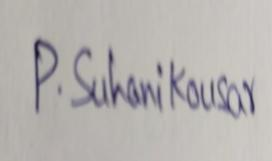 P. Suhani Kousar